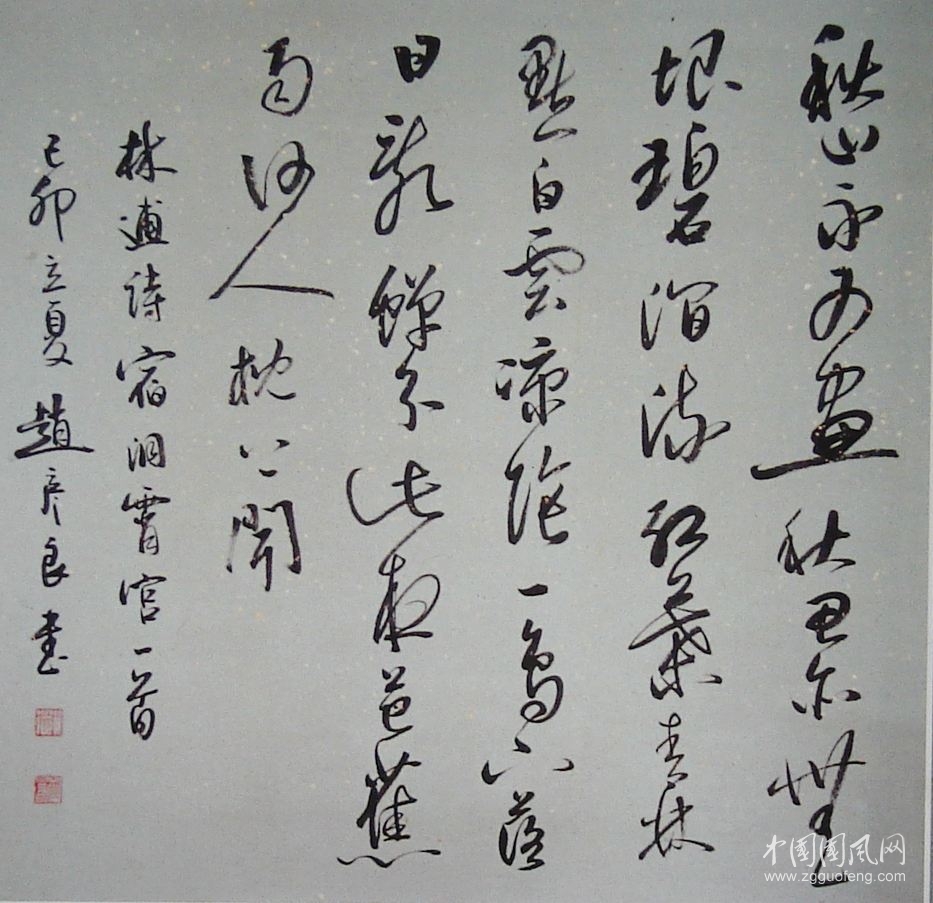 秋山不可盡秋思亦無
垠碧澗流紅葉青林
點白雲涼陰一鳥下落
日亂蟬分此夜芭蕉
雨何人枕上聞
林逋詩宿洞霄宫一首
己卯立夏趙彦良書
中國國風网
www.zgguofeng.com